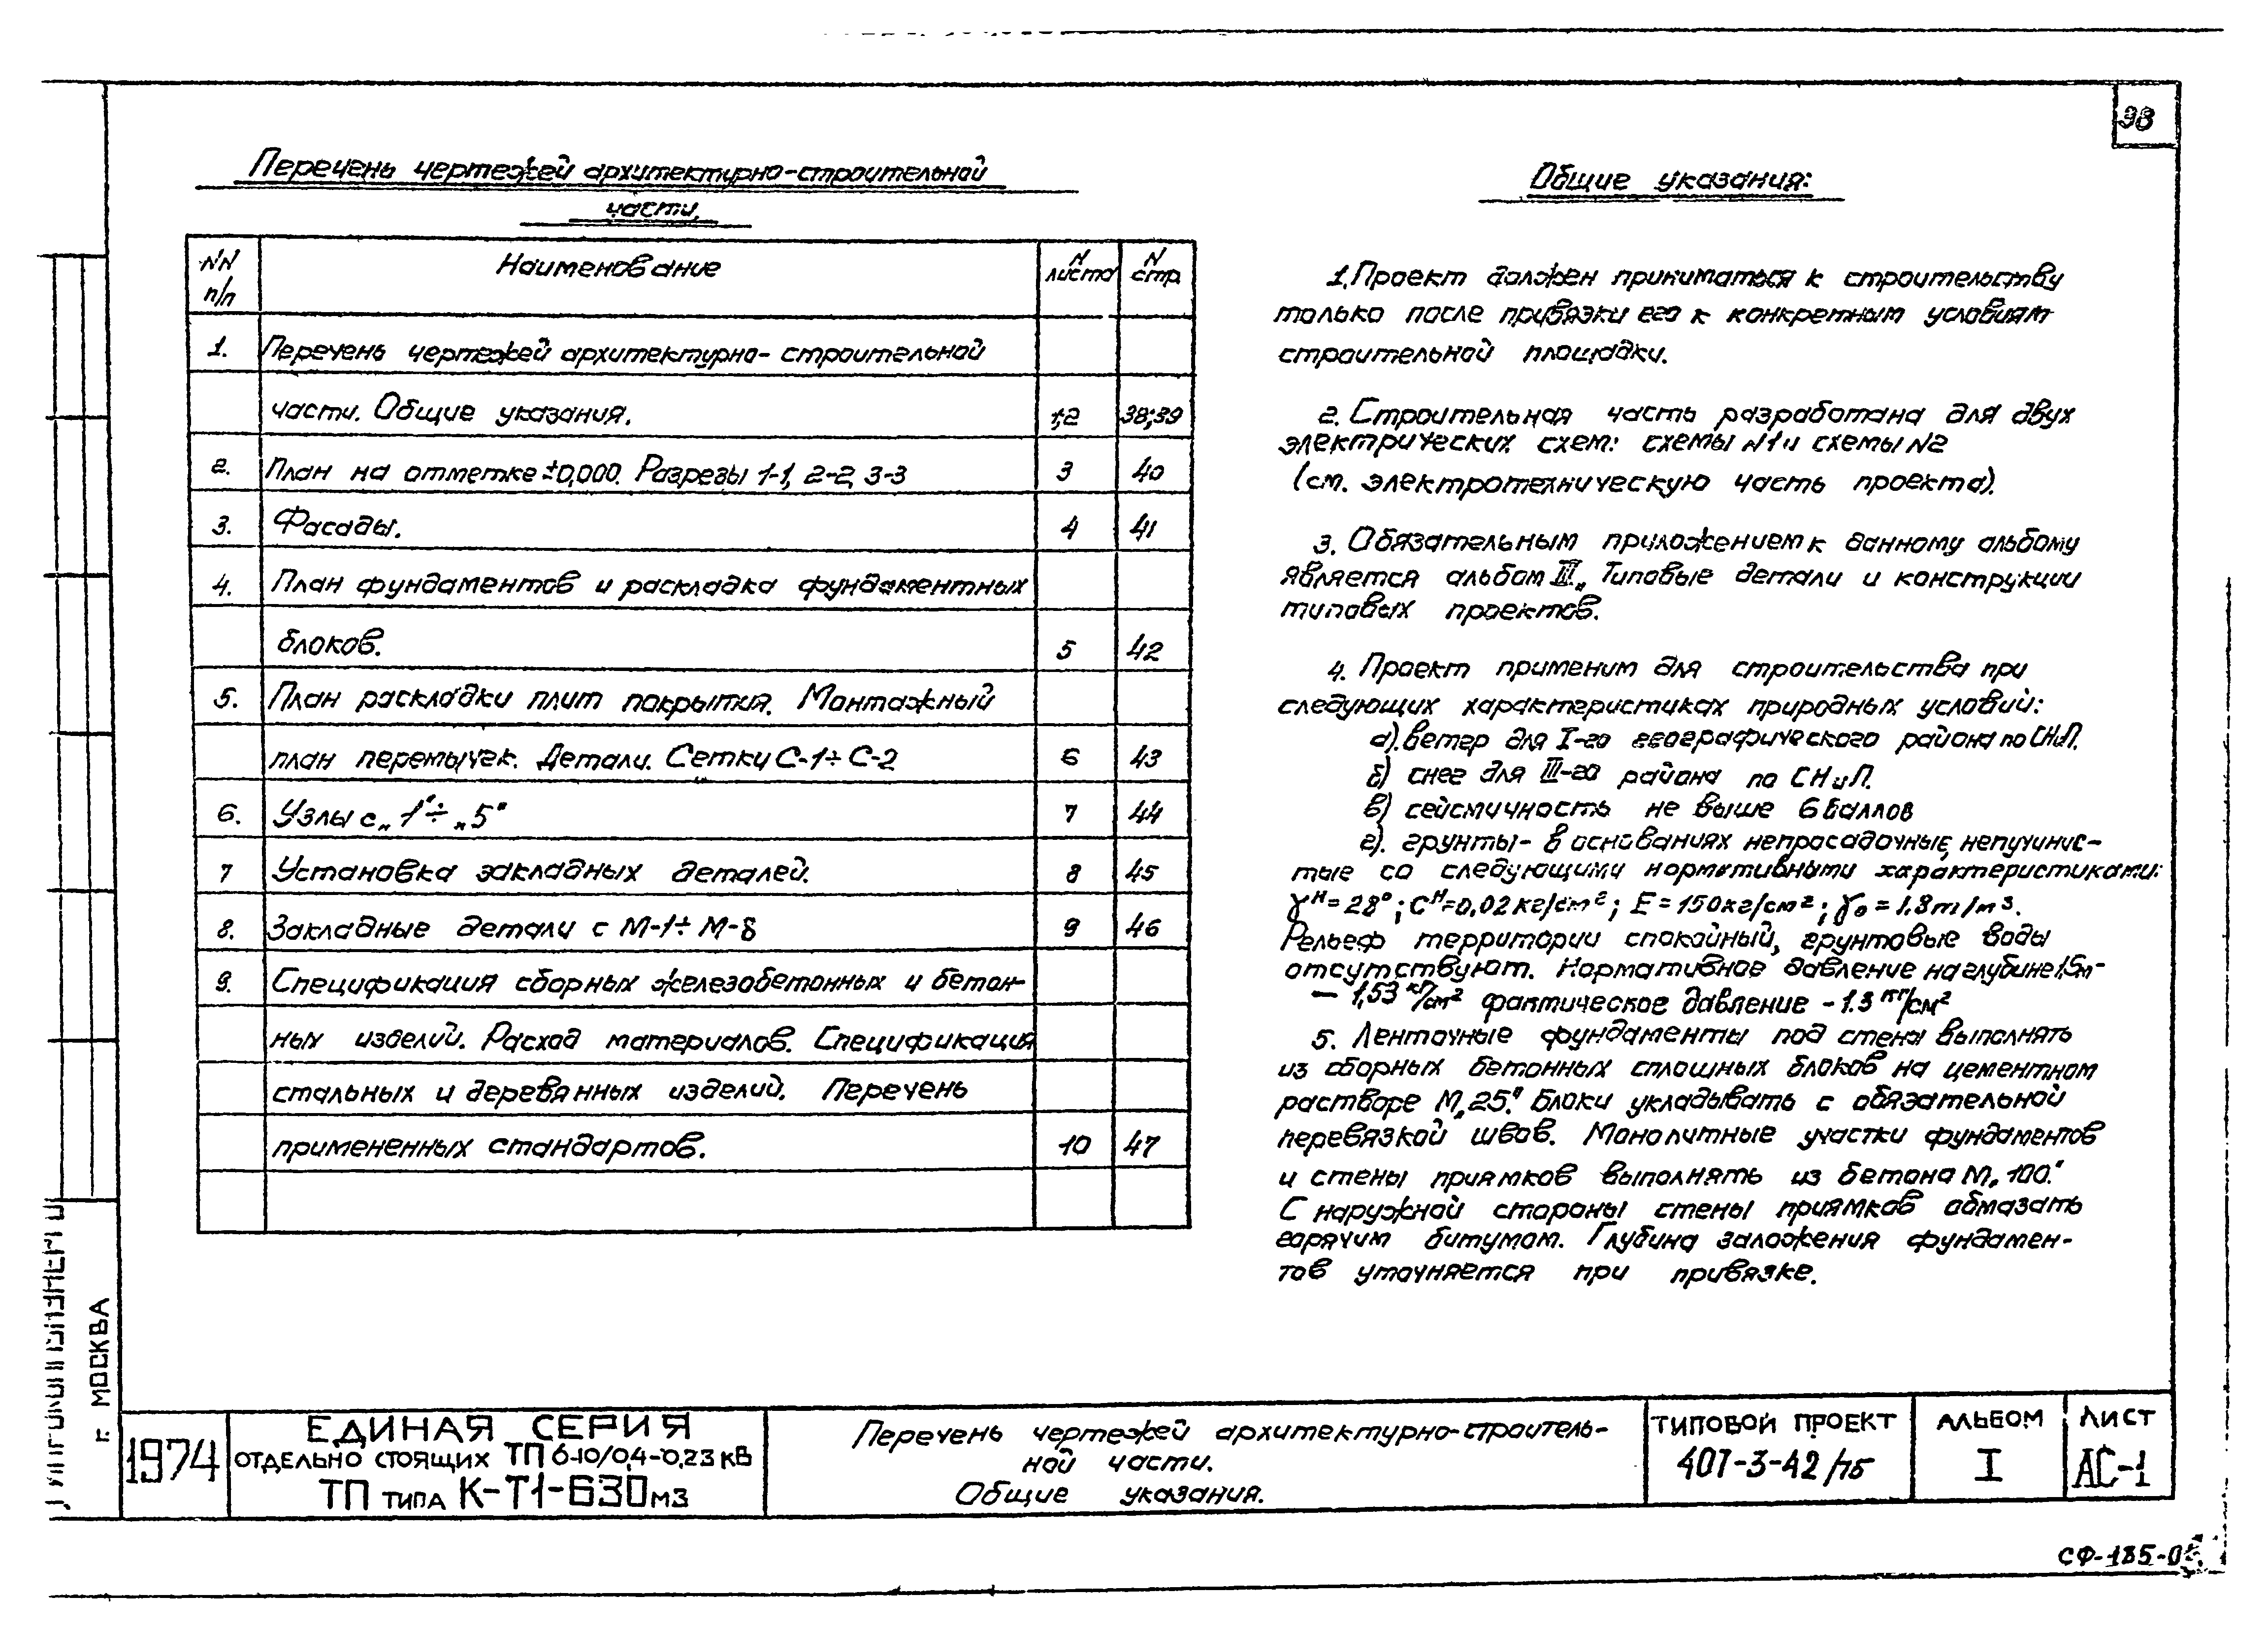 38
Перечень чертежей архитектурно-строительной
части.
NN п/п Наименование N листа N стр.
1. Перечень чертежей архитектурно-строительной
части. Общие указания. 1,2 38;39
2. План на отметке ±0,000. Разрезы 1-1, 2-2, 3-3 3 40
3. Фасады. 4 41
4. План фундаментов и раскладка фундаментных
блоков. 5 42
5. План раскладки плит покрытия. Монтажный
план перемычек. Детали. Сетки С-1÷С-2 6 43
6. Узлы с „1"÷„5" 7 44
7 Установка закладных деталей. 8 45
8. Закладные детали с М-1÷М-8 9 46
9. Спецификация сборных железобетонных и бетон-
ных изделий. Расход материалов. Спецификация
стальных и деревянных изделий. Перечень
примененных стандартов. 10 47
Общие указания:
1. Проект должен приниматься к строительству
только после привязки его к конкретным условиям
строительной площадки.
2. Строительная часть разработана для двух
электрических схем: схемы N1 и схемы N2
(см. электротехническую часть проекта).
3. Обязательным приложением к данному альбому
является альбом III „Типовые детали и конструкции
типовых проектов.
4. Проект применим для строительства при
следующих характеристиках природных условий:
а). ветер для I-го географического района по СНиП.
б) снег для III-го района по СНиП.
в) сейсмичность не выше 6 баллов
г). грунты- в основаниях непросадочные, непучинис-
тые со следующими нормативными характеристиками:
γᴴ=28°; Сᴴ=0,02кг/см²; Е=150кг/см²; γ₀=1.8т/м³.
Рельеф территории спокойный, грунтовые воды
отсутствуют. Нормативное давление на глубине 1,5м-
- 1,53 кг/см² фактическое давление - 1.3 кг/см²
5. Ленточные фундаменты под стены выполнять
из сборных бетонных сплошных блоков на цементном
растворе М„25". Блоки укладывать с обязательной
перевязкой швов. Монолитные участки фундаментов
и стены приямков выполнять из бетона М„100".
С наружной стороны стены приямков обмазать
горячим битумом. Глубина заложения фундамен-
тов уточняется при привязке.
г. МОСКВА
1974
ЕДИНАЯ СЕРИЯ
ОТДЕЛЬНО СТОЯЩИХ ТП 6-10/0,4-0,23 кВ
ТП ТИПА К-Т1-630 М3
Перечень чертежей архитектурно-строитель-
ной части.
Общие указания.
ТИПОВОЙ ПРОЕКТ
407-3-42/75
АЛЬБОМ
I
ЛИСТ
АС-1
СФ-185-0